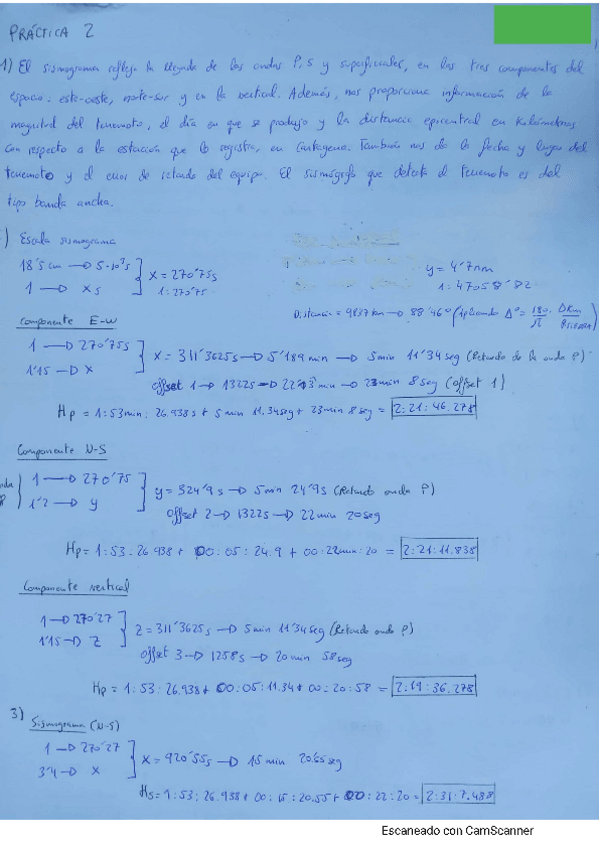 PRÁCTICA 2
1) El sismograma refleja la llegada de las ondas P, S y superficiales, en las tres componentes del
espacio: este-oeste, norte-sur y en la vertical. Además, nos proporciona información de la
magnitud del terremoto, el día en que se produjo y la distancia epicentral en kilómetros
con respecto a la estación que lo registra, en Cartagena. También nos da la fecha y lugar del
terremoto y el error de retardo del equipo. El sismógrafo que detecta el terremoto es del
tipo banda ancha.
) Escala sismograma
18'5 cm → 5·10³s
1 → x s
x = 270'75s
1:270'75
y = 4'7mm
1:47058'82
Distancia = 9837 km → 88'46° (Aplicando Δ° = 180/π · ΔKm/RTIERRA)
Componente E-W
1 → 270'75s
1'15 → x
x = 311'3625s → 5'189 min → 5min 11'34seg (Retardo de la onda P)
offset 1 → 1322s → 22'13 min → 23min 8seg (offset 1)
Hp = 1:53min: 26.938s + 5 min 11.34seg + 23min 8seg = 2:21:46.278
Componente N-S
1 → 270'75
1'2 → y
y = 324'9s → 5min 24'9s (Retardo onda P)
offset 2 → 1322s → 22min 20seg
Hp = 1:53:26.938 + 00:05:24.9 + 00:22min:20 = 2:21:11.838
Componente vertical
1 → 270'27
1'15 → z
z = 311'3625s → 5 min 11'34seg (Retardo onda P)
offset 3 → 1258s → 20min 58seg
Hp = 1:53:26.938 + 00:05:11.34 + 00:20:58 = 2:19:36.278
3) Sismograma (N-S)
1 → 270'27
3'4 → x
x = 920'55s → 15 min 20.65seg
Hs = 1:53:26.938 + 00:15:20.55 + 00:22:20 = 2:31:7.488
Escaneado con CamScanner